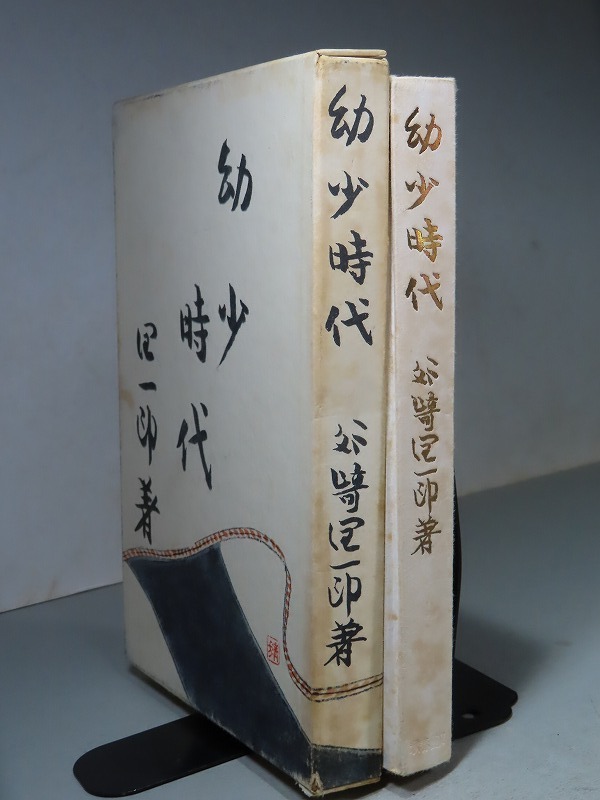 幼少
時代
潤一郎著
幼少時代 谷崎潤一郎著
幼少時代 谷崎潤一郎著